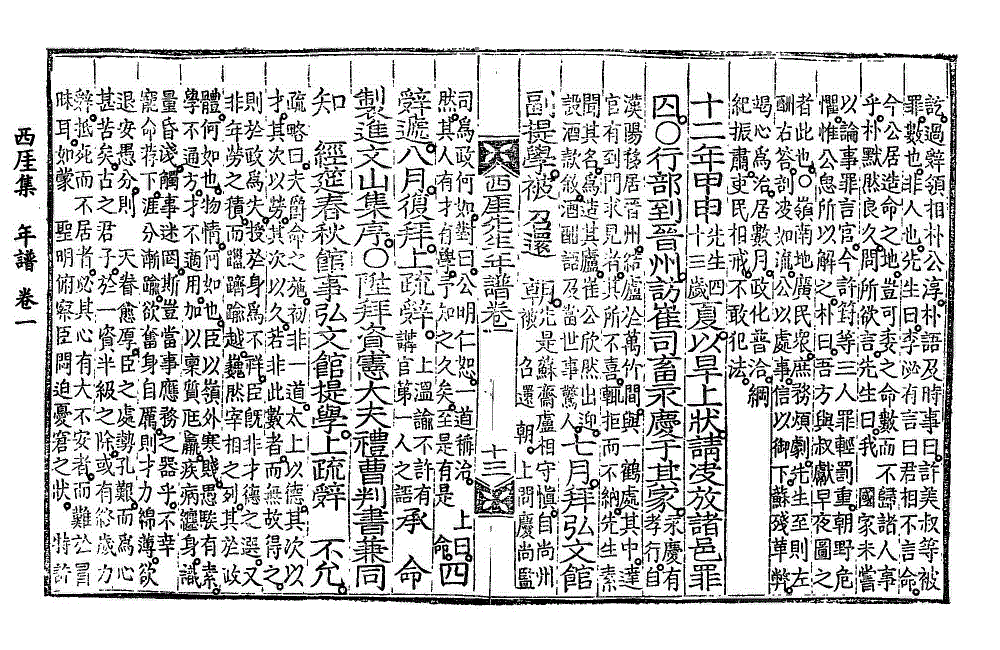 說過辭領相朴公淳朴語及時事曰許美叔等被
罪數也非人也先生曰李泌有言曰君相不言命
今公居造命之地豈可委之命數而不歸諸人事
乎朴默然良久問所欲言先生曰我 國家未嘗
以論事罪言官今許篈等三人罪輕罰重朝野危
懼惟公息所以解之朴曰吾方與叔獻早夜圖之
者此也○嶺南地廣民衆庶務煩劇先生至則左
酬右答剖决如流公以處事信以御下蘇殘革弊
竭心爲治居數月政化普洽綱
紀振肅吏民相戒不敢犯法
十二年甲申先生四十三歲夏以旱上狀請凌放諸邑罪
囚○行部到晉州訪崔司畜永慶于其家永慶有孝行自
漢陽移居晉州結廬於萬竹間與一鶴處其中達
官有到門求見者其所不喜輒拒而不納先生素
聞其名爲造其廬崔公欣然出迎
設酒款敘酒酣語及當世事驚人七月拜弘文館
副提學被 召還 朝先是蘇齋盧相守愼自尚州
被 召還 朝 上問慶尚監
西厓先生年譜卷一 十三
司爲政何如對曰公明仁恕一道稱治 上曰
然其人有才有學予知之久矣至是有是 命四
辭遞八月復拜上疏辭 上溫諭不許有
講官第一人之語承 命
製進文山集序○陞拜資憲大夫禮曹判書兼同
知 經筵春秋館事弘文館提學上疏辭 不允
疏略曰夫爵命之施初非一道太上以德其次以
才其次以勞其次以久若非此數者而無故得之
則於政爲失授於身爲不祥臣旣非才德之選又
非年勞之積而躐躋踰越巍然宰相之列其於政
體何如也物情何如也臣以嶺外寒賤愚騃有素
學不通方才不適用加以稟質尫羸疾病纏身識
量昏淺觸事迷罔斯豈當事應務之器乎不幸
寵命荐下涯分漸踰欲奮身自厲則才力綿薄欲
退安愚分則 天眷愈厚臣之處勢孔艱而爲心
甚苦矣古之君子於一資半級之除或有終歲力
辭抵死而不居者必其心有大不安者而難於冒
昧耳如蒙 聖明俯察臣悶迫憂窘之狀 特許
西厓集 年譜 卷一